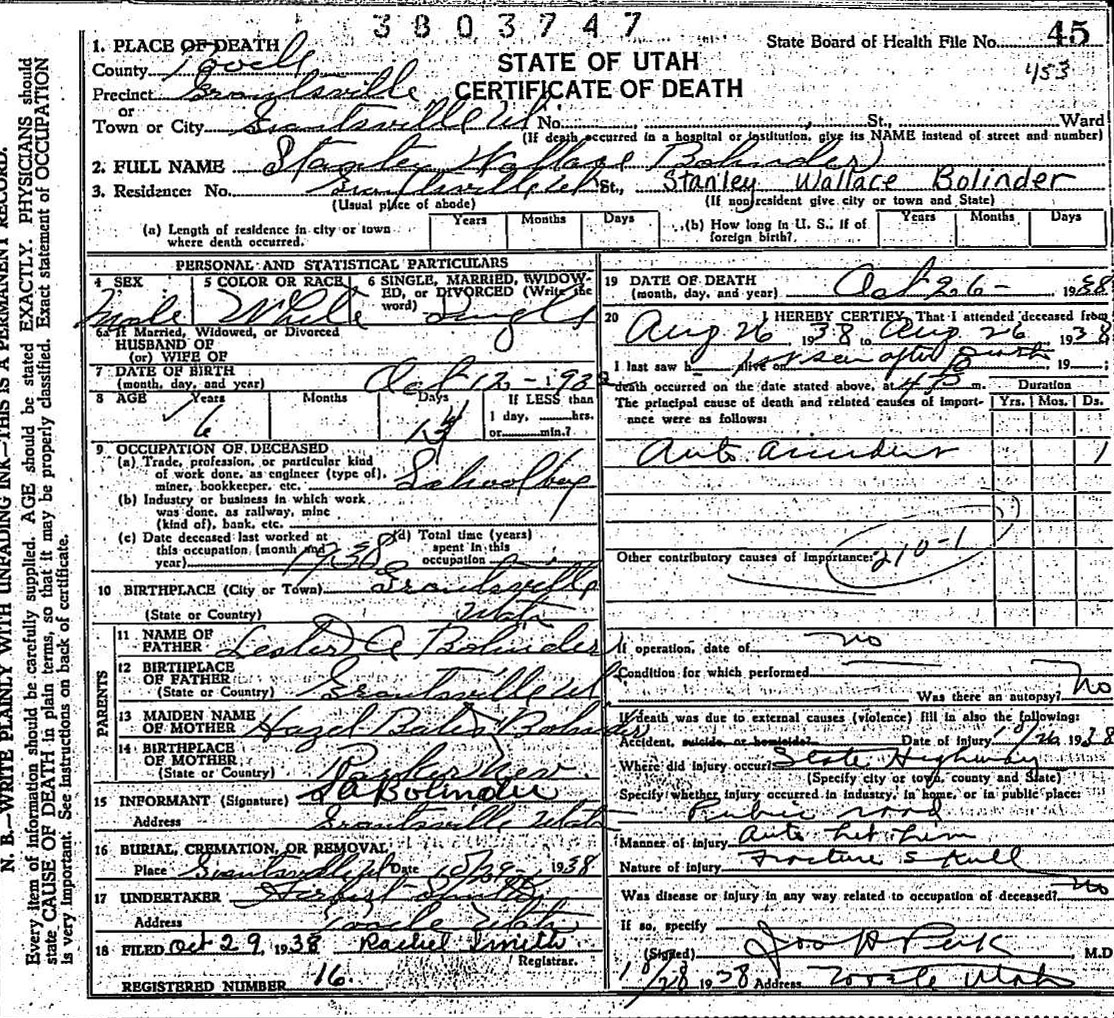 3803747
State Board of Health File No. 45
453
STATE OF UTAH
CERTIFICATE OF DEATH
1. PLACE OF DEATH
County Tooele
Precinct Grantsville
or
Town or City Grantsville Ut No. St., Ward
(If death occurred in a hospital or institution, give its NAME instead of street and number)
2. FULL NAME Stanley Wallace Bolinder
3. Residence: No. Grantsville Ut St., Stanley Wallace Bolinder
(Usual place of abode) (If nonresident give city or town and State)
(a) Length of residence in city or town where death occurred. Years Months Days
(b) How long in U. S., if of foreign birth? Years Months Days
PERSONAL AND STATISTICAL PARTICULARS
4 SEX Male
5 COLOR OR RACE White
6 SINGLE, MARRIED, WIDOWED, or DIVORCED (Write the word) Single
6a If Married, Widowed, or Divorced
HUSBAND OF
(or) WIFE OF
7 DATE OF BIRTH
(month, day, and year) Oct 12 - 193
8 AGE Years 6 Months Days If LESS than
1 day, hrs.
or min.?
9 OCCUPATION OF DECEASED
(a) Trade, profession, or particular kind
of work done, as engineer (type of),
miner, bookkeeper, etc. Schoolboy
(b) Industry or business in which work
was done, as railway, mine
(kind of), bank, etc.
(c) Date deceased last worked at
this occupation (month and
year) 1938
(d) Total time (years)
spent in this
occupation
10 BIRTHPLACE (City or Town) Grantsville
(State or Country) Utah
PARENTS
11 NAME OF
FATHER Lester A Bolinder
12 BIRTHPLACE
OF FATHER
(State or Country) Grantsville Ut
13 MAIDEN NAME
OF MOTHER Hazel Bates Bolinder
14 BIRTHPLACE
OF MOTHER
(State or Country) Nev
15 INFORMANT (Signature) L A Bolinder
Address Grantsville Utah
16 BURIAL, CREMATION, OR REMOVAL
Place Grantsville Ut Date 10/29 1938
17 UNDERTAKER Herbert Smith
Address Tooele Utah
18 FILED Oct 29, 1938 Rachel Smith
Registrar.
REGISTERED NUMBER 16.
19 DATE OF DEATH
(month, day, and year) Oct 26 - 1938
20 I HEREBY CERTIFY, That I attended deceased from
Aug 26, 1938 to Aug 26, 1938
I last saw h alive on seen after death, 19 ;
death occurred on the date stated above, at m.
The principal cause of death and related causes of importance were as follows:
Duration
Yrs. Mos. Ds.
Auto accident 1
Other contributory causes of importance: 210-1
If operation, date of no
Condition for which performed
Was there an autopsy? No
If death was due to external causes (violence) fill in also the following:
Accident, suicide, or homicide? Date of injury 10/26 1938
Where did injury occur? State Highway
(Specify city or town, county and State)
Specify whether injury occurred in industry, in home, or in public place:
Public road
Manner of injury Auto hit him
Nature of injury Fracture skull
Was disease or injury in any way related to occupation of deceased? no
If so, specify
(Signed) Jos H Peck M.D
10/28 1938 Address Tooele Utah
N. B.—WRITE PLAINLY WITH UNFADING INK—THIS IS A PERMANENT RECORD.
Every item of information should be carefully supplied. AGE should be stated EXACTLY. PHYSICIANS should
state CAUSE OF DEATH in plain terms, so that it may be properly classified. Exact statement of OCCUPATION
is very important. See instructions on back of certificate.